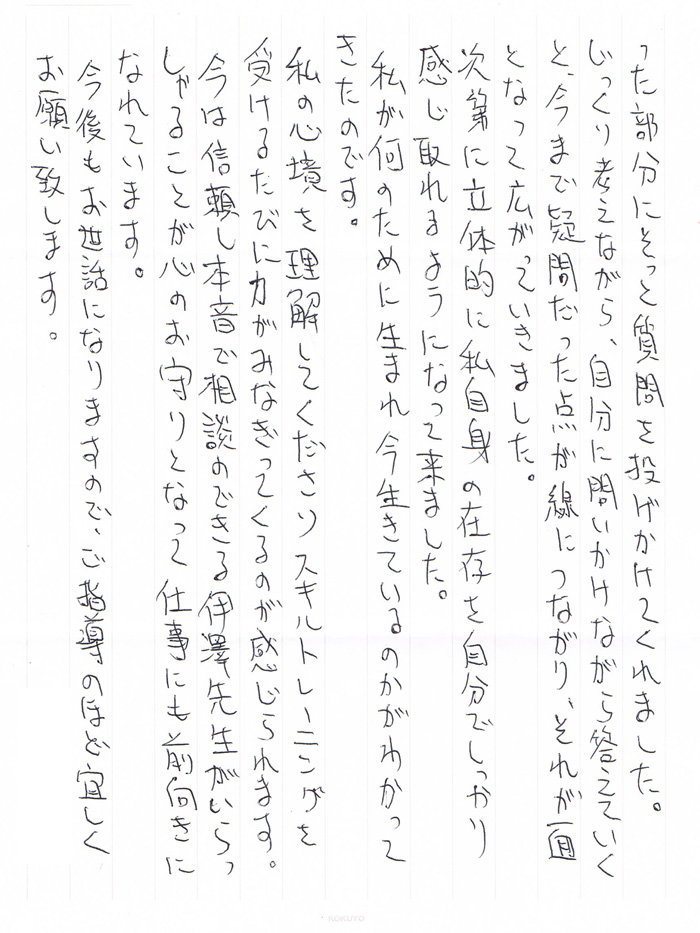 った部分にそっと質問を投げかけてくれました。
じっくり考えながら、自分に問いかけながら答えていく
と、今まで疑問だった点が線につながり、それが面
となって広がっていきました。
次第に立体的に私自身の在存を自分でしっかり
感じ取れるようになって来ました。
私が何のために生まれ今生きているのかがわかって
きたのです。
私の心境を理解してくださりスキルトレーニングを
受けるたびに力がみなぎってくるのが感じられます。
今は信頼し本音で相談のできる伊澤先生がいらっ
しゃることが心のお守りとなって仕事にも前向きに
なれています。
今後もお世話になりますので、ご指導のほど宜しく
お願い致します。
KOKUYO